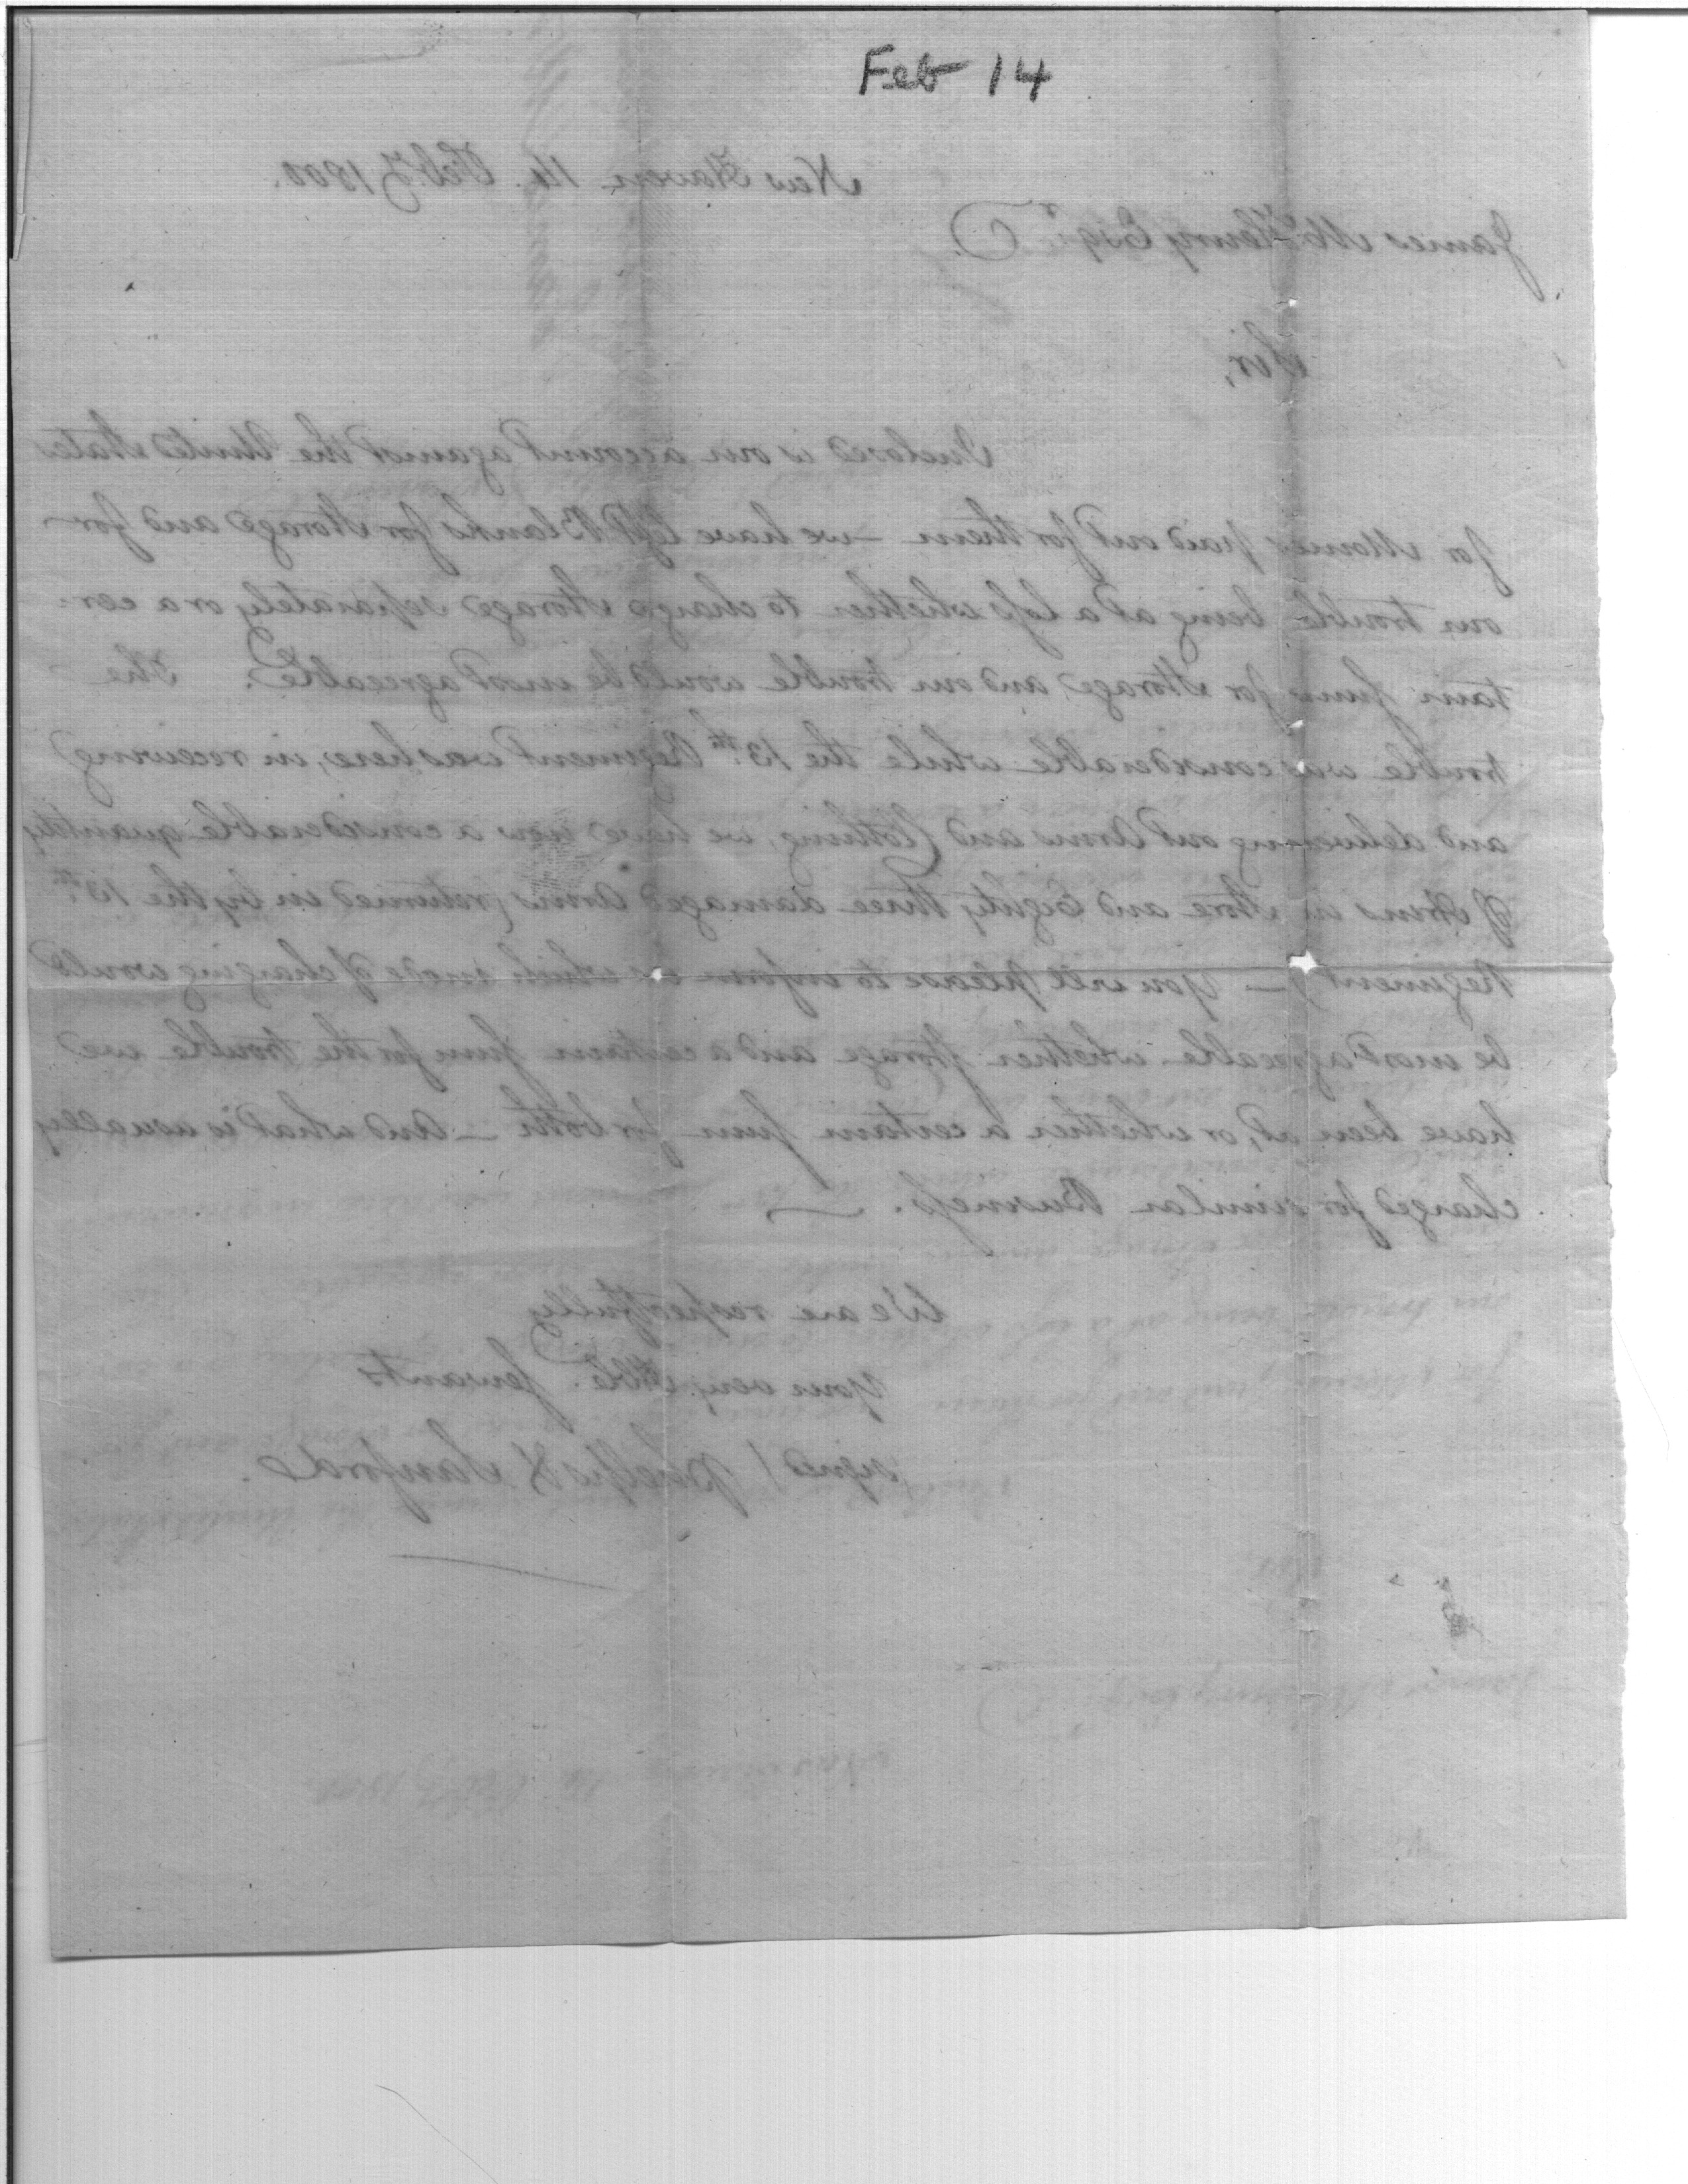 Feb 14
New Haven 14. Feby. 1800.
James McHenry Esqr.
Sir,
Inclosed is our account against the United States
for Monies paid out for them — we have left Blanks for Storage and for
our trouble being at a loss whether to charge Storage separately or a cer-
tain sum for Storage and our trouble would be most agreeable. The
trouble was considerable while the 13th. Regiment was here, in receiving
and delivering out Arms and Clothing, we have now a considerable quantity
of Arms in Store and Eighty three damaged Arms (returned in by the 13th.
Regiment) — You will please to inform us which mode of charging would
be most agreeable whether Storage and a certain sum for the trouble we
have been at, or whether a certain sum for both — and what is usually
charged for similar Business. —
We are respectfully
Your very Hble. Servants
signed / Phelps & Sanford